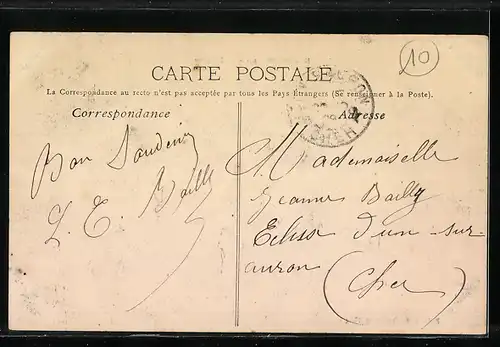 10
CARTE POSTALE
La Correspondance au recto n'est pas acceptée par tous les Pays Étrangers (Se renseigner à la Poste).
Correspondance
Adresse
CHER
Bon Souvenir
L. E. Bailly
Mademoiselle
Jeanne Bailly
Ecluse Dun-sur-
auron
(Cher)